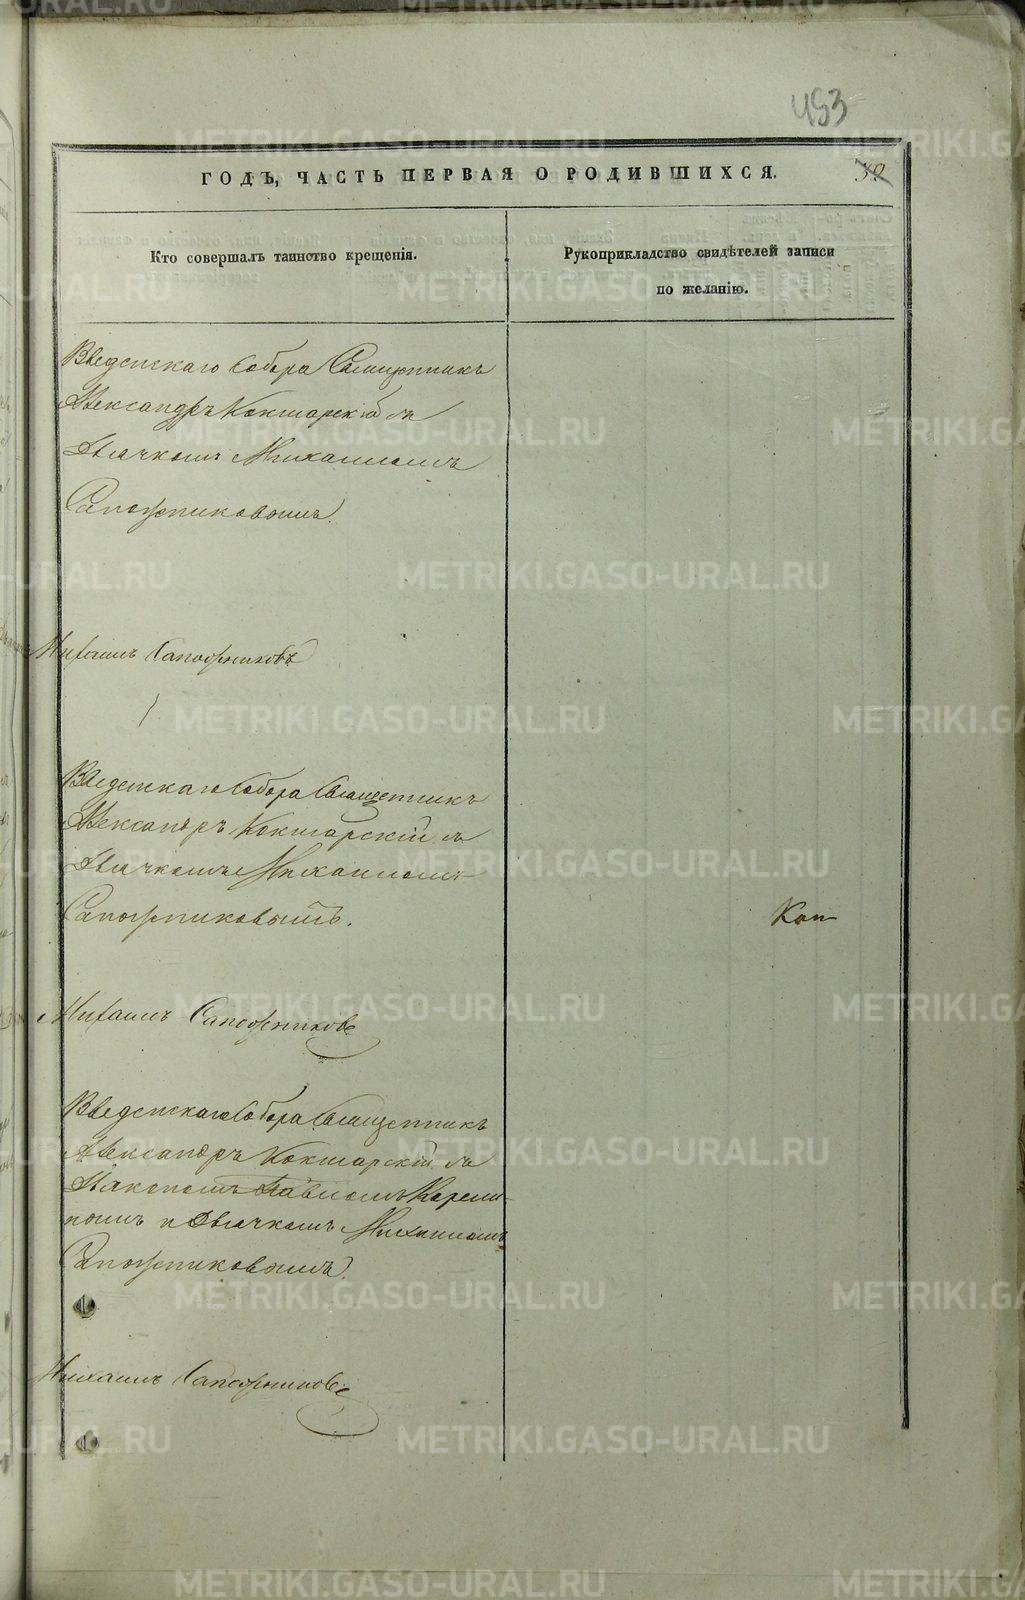 453
ГОДЪ, ЧАСТЬ ПЕРВАЯ О РОДИВШИХСЯ.
39
Кто совершалъ таинство крещенія.
Рукоприкладство свидѣтелей записи
по желанію.
Введенскаго Собора Священникъ
Александръ Кокшарскій съ
Дьячкомъ Михаиломъ
Сапожниковымъ.
Михаилъ Сапожниковъ
Введенскаго Собора Священникъ
Александръ Кокшарскій съ
Дьячкомъ Михаиломъ
Сапожниковымъ.
Коп
Михаилъ Сапожниковъ
Введенскаго Собора Священникъ
Александръ Кокшарскій съ
Діакономъ Павломъ
и Дьячкомъ Михаиломъ
Сапожниковымъ.
Михаилъ Сапожниковъ
METRIKI.GASO-URAL.RU